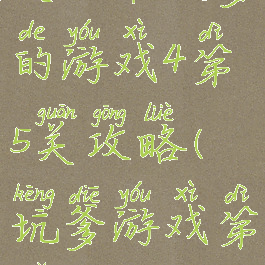 de yóu xì dì
的游戏4第
guān gōng lüè
5关攻略(
kēng diē yóu xì dì
坑爹游戏第